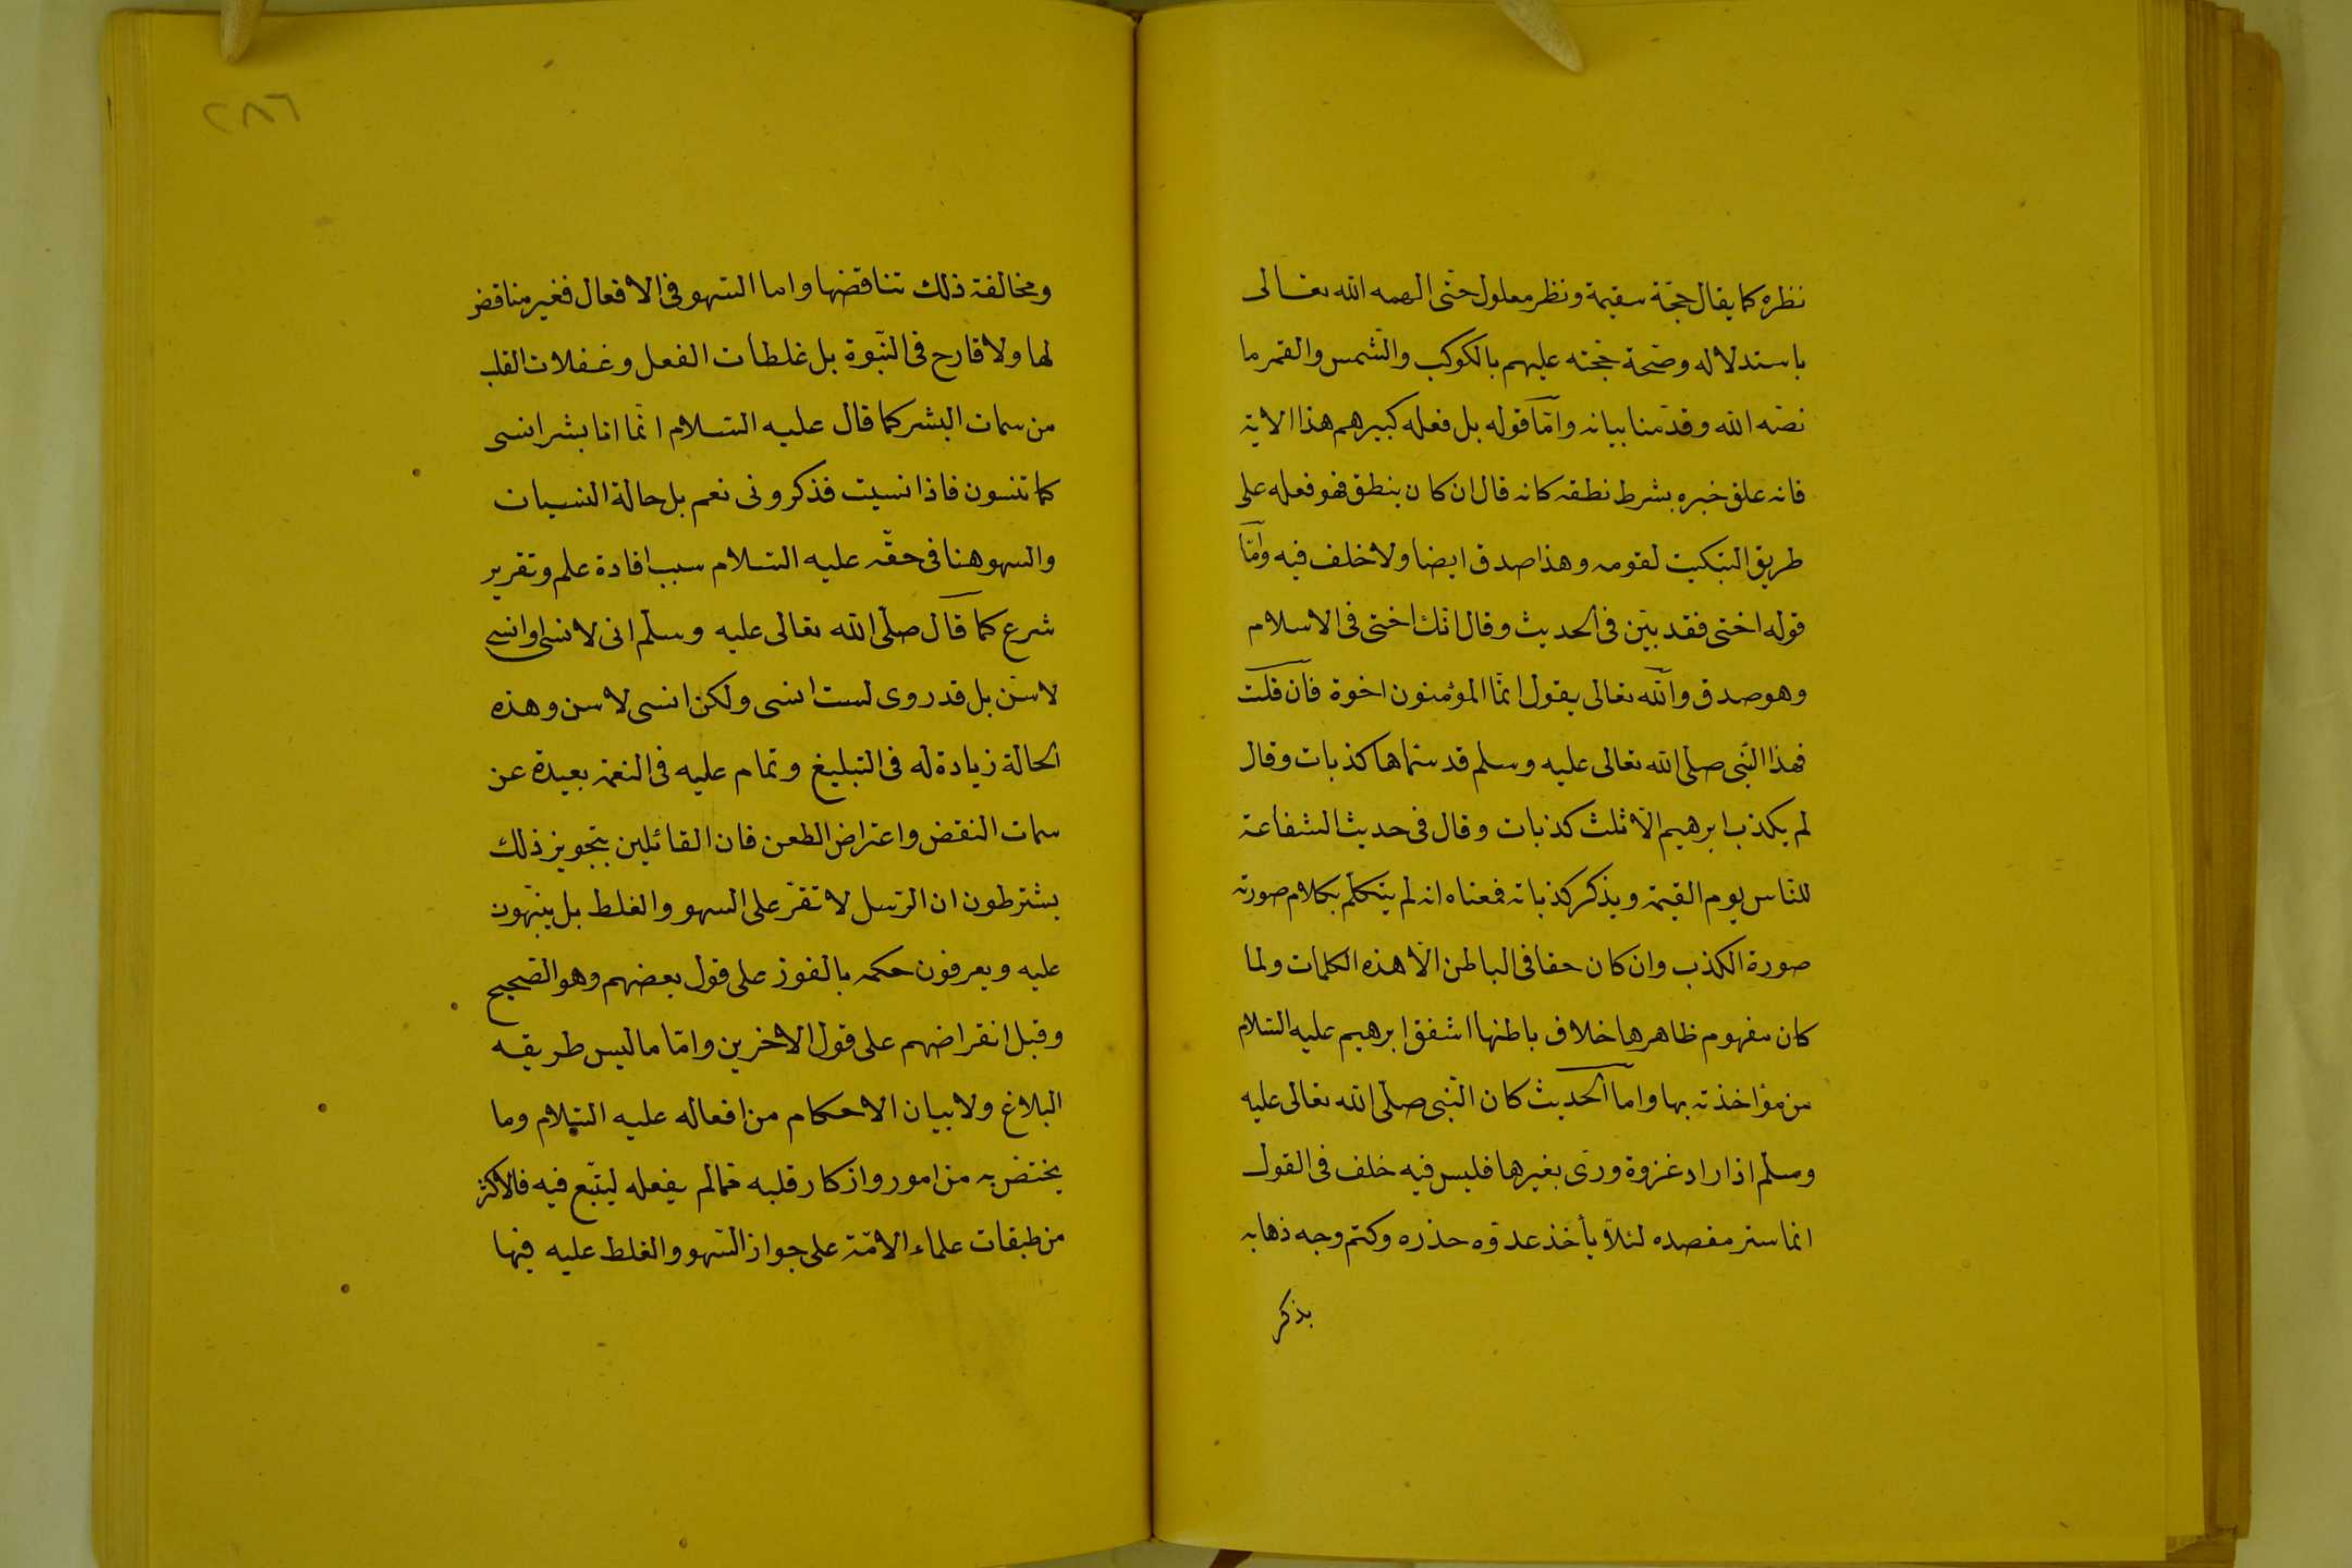 نظره كما يقال حجّة سقيمة ونظر معلول حتّى الهمه الله تعالى
باستدلاله وصحّة حجته عليهم بالكوكب والشّمس والقمر ما
نصّه الله وقدّمنا بيانه وامّا قوله بل فعله كبيرهم هذا الاية
فانه علق خبره بشرط نطقه كانه قال ان كان ينطق فهو فعله على
طريق التبكيت لقومه وهذا صدق ايضا ولا خلف فيه وامّا
قوله اختى فقد بيّن فى الحديث وقال انّك اختى فى الاسلام
وهو صدق والله تعالى يقول انّما المؤمنون اخوة فان قلت
فهذا النّبى صلى الله تعالى عليه وسلم قد سمّاها كذبات وقال
لم يكذب ابرهيم الّا ثلث كذبات وقال فى حديث الشفاعة
للنّاس يوم القيمة ويذكر كذباته فمعناه انه لم يتكلّم بكلام صورته
صورة الكذب وان كان حقا فى الباطن الّا هذه الكلمات ولما
كان مفهوم ظاهرها خلاف باطنها اشفق ابرهيم عليه السّلام
من مؤاخذته بها واما الحديث كان النّبى صلّى الله تعالى عليه
وسلّم اذا اراد غزوة ورّى بغيرها فليس فيه خلف فى القول
انما ستر مقصده لئلّا يأخذ عدوّه حذره وكتم وجه ذهابه
بذكر
٢٨٦
ومخالفة ذلك تناقضها واما السّهو فى الافعال فغير مناقض
لها ولا قارح فى النّبوة بل غلطات الفعل وغفلات القلب
من سمات البشر كما قال عليه السّلام انّما انا بشر انسى
كما تنسون فاذا نسيت فذكرونى نعم بل حالة النسيان
والسهو هنا فى حقّه عليه السّلام سبب افادة علم وتقرير
شرع كما قال صلّى الله تعالى عليه وسلّم انى لا نسى او انسى
لاسنّ بل قد روى لست انسى ولكن انسى لاسن وهذه
الحالة زيادة له فى التبليغ وتمام عليه فى النعمة بعيدة عن
سمات النقض واعتراض الطعن فان القائلين بتجويز ذلك
يشترطون ان الرّسل لا تقرّ على السهو والغلط بل ينبّهون
عليه ويعرفون حكمه بالفوز على قول بعضهم وهو الصّحيح
وقبل انقراضهم على قول الاخرين وامّا ما ليس طريقه
البلاغ ولا بيان الاحكام من افعاله عليه السّلام وما
يختصّ به من امور واذكار قلبه ممّا لم يفعله ليتّبع فيه فالاكثر
من طبقات علماء الامّة على جواز السّهو والغلط عليه فيها